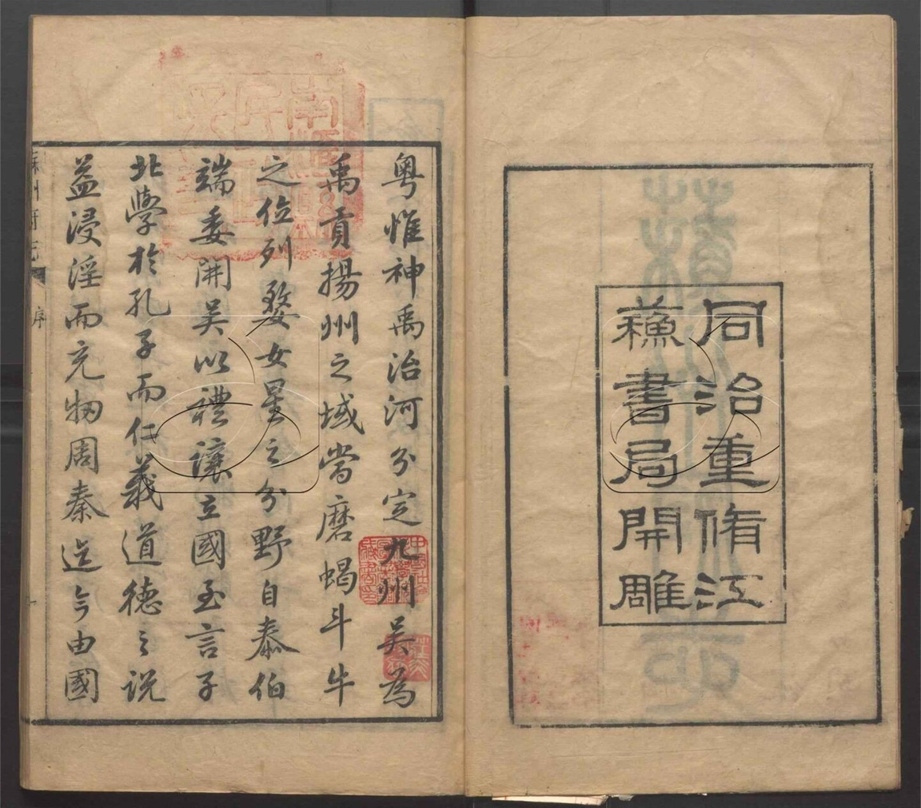 同治重脩江
蘇書局開雕
粵惟神禹治河分定九州吳為
禹貢揚州之域當磨蝎斗牛
之位列婺女星之分野自泰伯
端委開吳以禮讓立國至言子
北學於孔子而仁義道德之說
益浸淫而充牣周秦迄今由國
蘇州府志
序